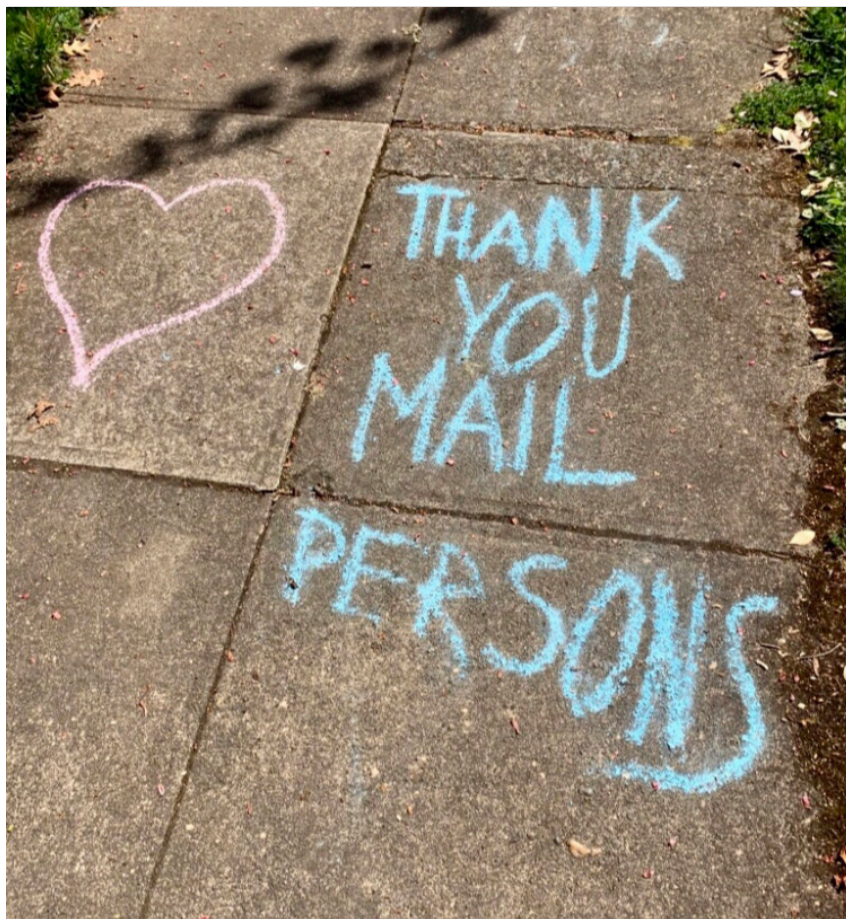 THANK
YOU
MAIL
PERSONS